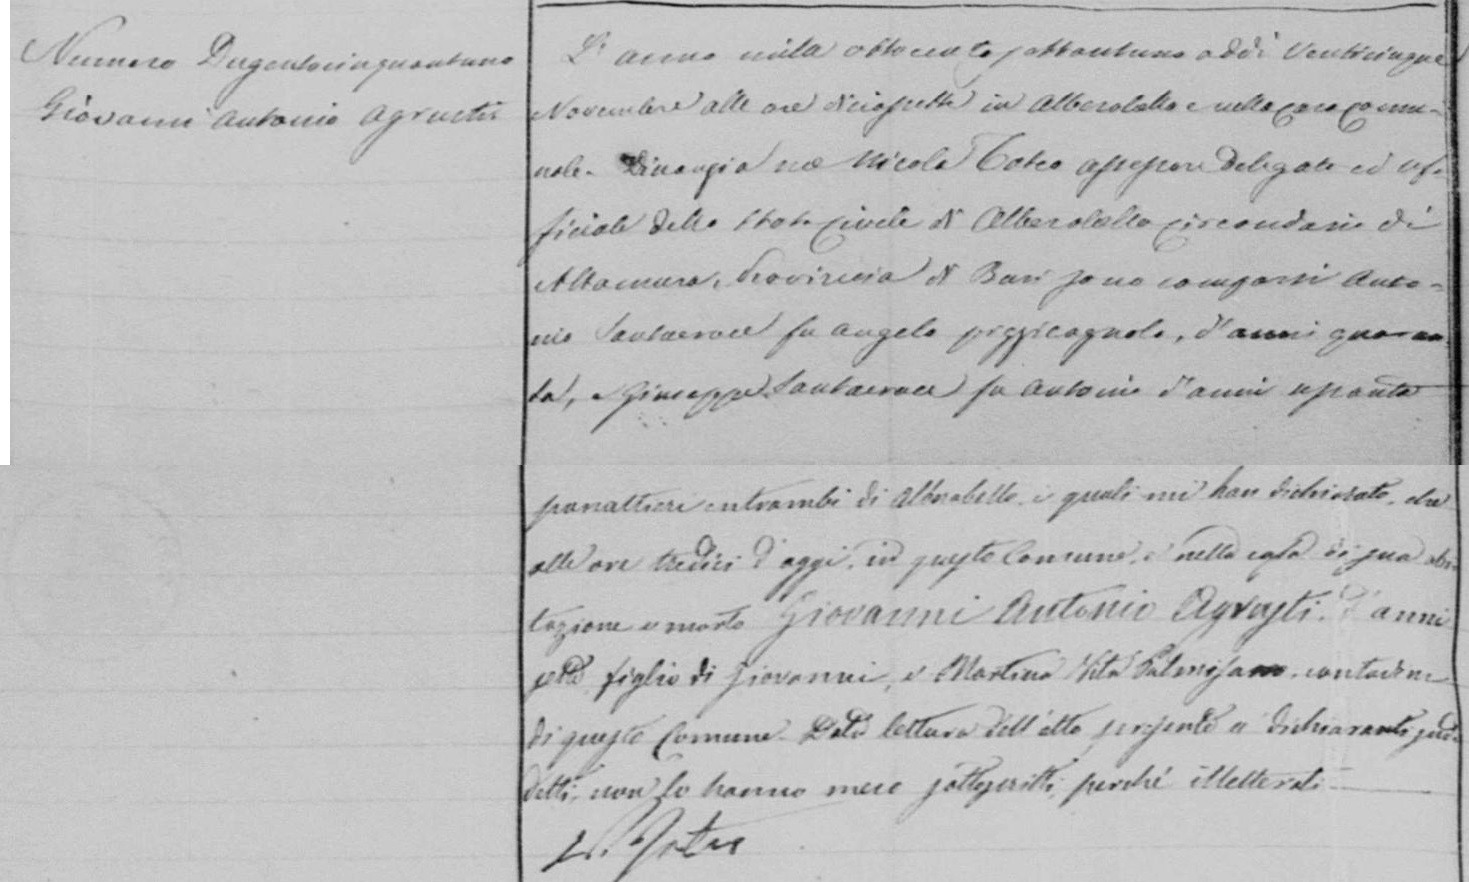 Numero Dugentocinquantuno
Giovanni Antonio Agrusti
L'anno mille ottocento settantuno addì Venticinque
Novembre alle ore diciassette in Alberobello e nella casa Comu-
nale. Dinanzi a me Nicola Toteo assessore delegato ed uf-
ficiale dello Stato Civile di Alberobello circondario di
Altamura, Provincia di Bari sono comparsi Anto-
nio Santacroce fu Angelo pizzicagnolo, d'anni quaran
ta, e Giuseppe Santacroce fu Antonio d'anni sessanta
panattieri entrambi di Alberobello, i quali mi han dichiarato, che
alle ore tredici d'oggi, in questo Comune, e nella casa di sua abi-
tazione e morto Giovanni Antonio Agrusti, d'anni
sette, figlio di Giovanni, e Martina Vita Palmisano, contadini
di questo Comune. Data lettura dell'atto presente a' dichiaranti sud-
detti, non lo hanno meco sottoscritto, perché illetterati